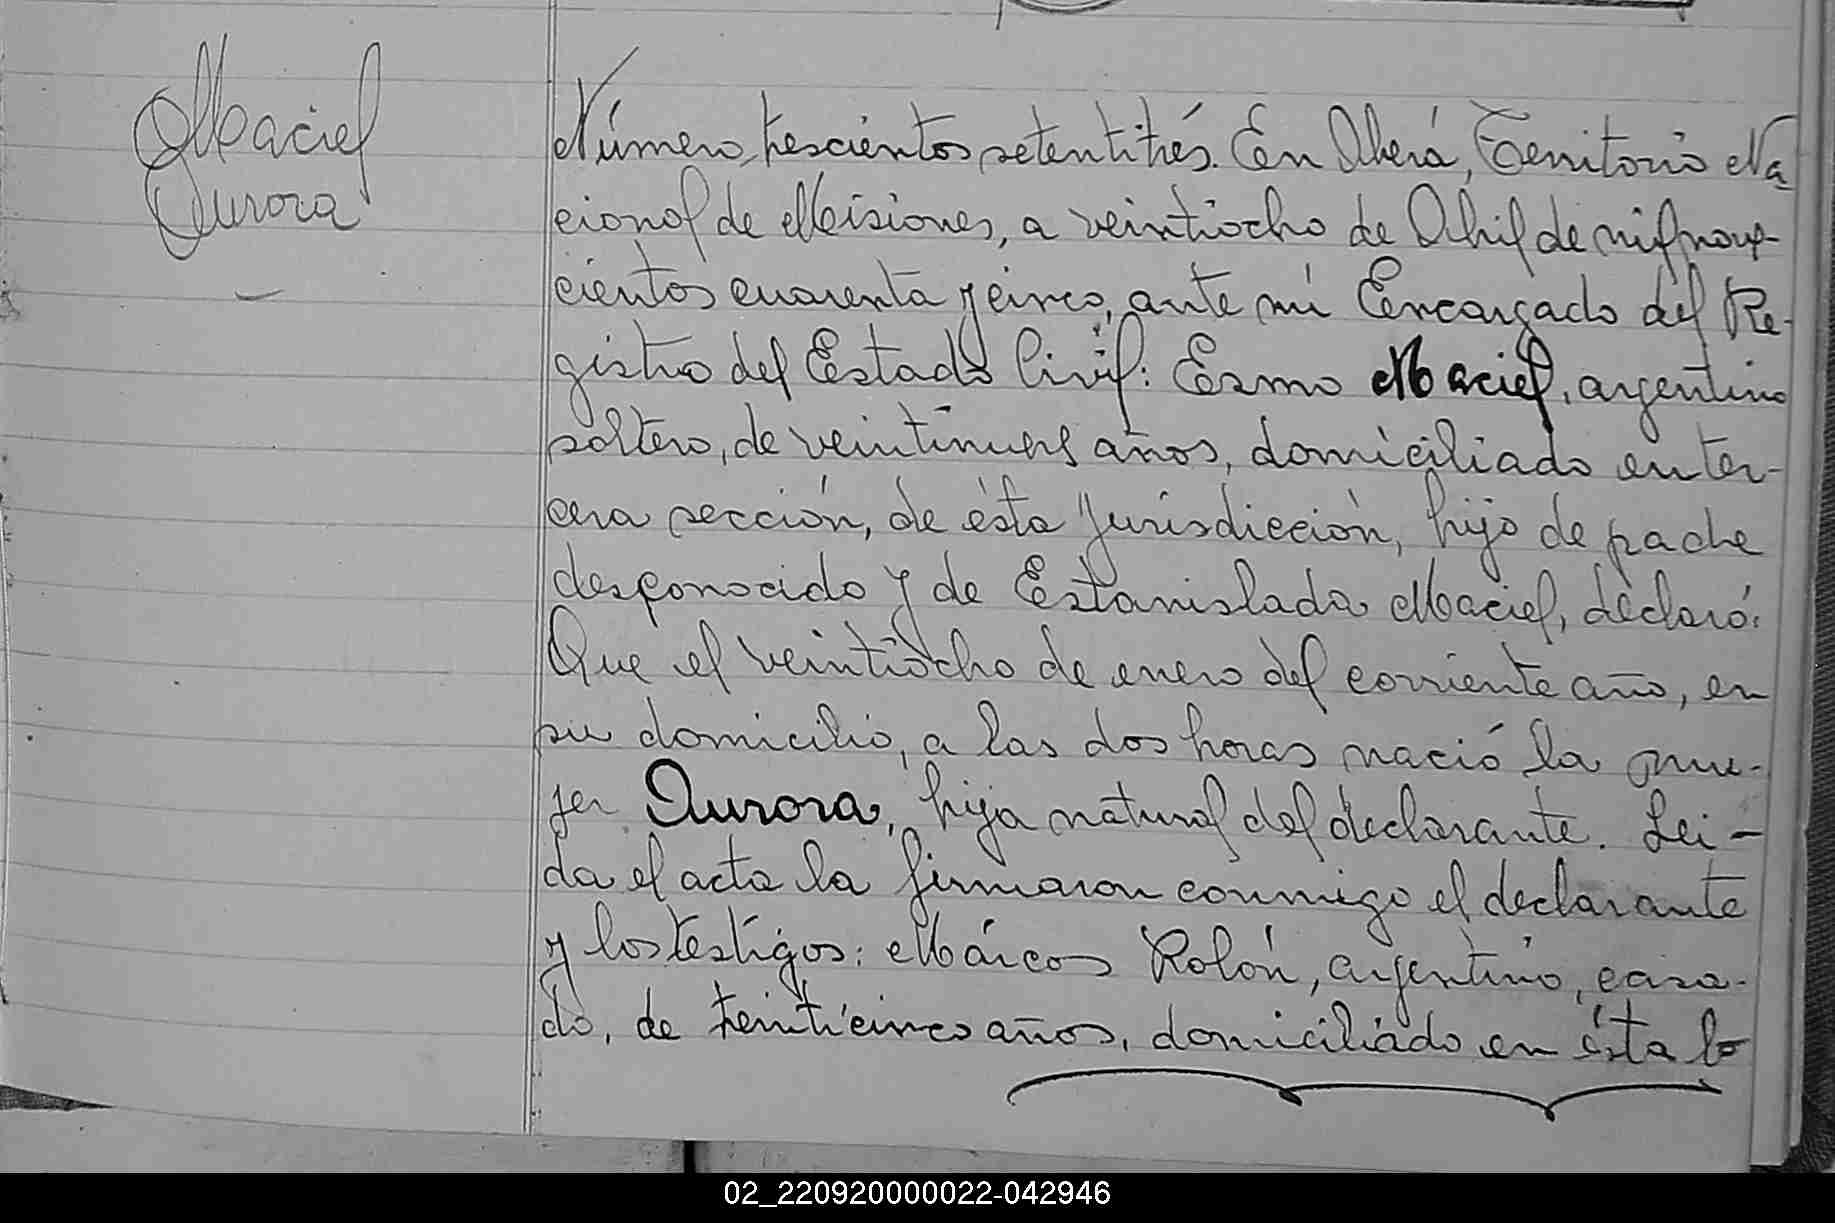 Maciel
Aurora
Número, trescientos setentitrés. En Oberá, Territorio Na
cional de Misiones, a veintiocho de Abril de mil nove-
cientos cuarenta y cinco, ante mí Encargado del Re-
gistro del Estado Civil: Ermo Maciel, argentino
soltero, de veintinueve años, domiciliado en ter-
cera sección, de ésta jurisdicción, hijo de padre
desconocido y de Estanislada Maciel, declaró:
Que el veintiocho de enero del corriente año, en
su domicilio, a las dos horas nació la mu-
jer Aurora, hija natural del declarante. Lei-
da el acta la firmaron conmigo el declarante
y los testigos: Márcos Rolón, argentino, casa-
do, de treinticinco años, domiciliado en ésta lo
02_220920000022-042946